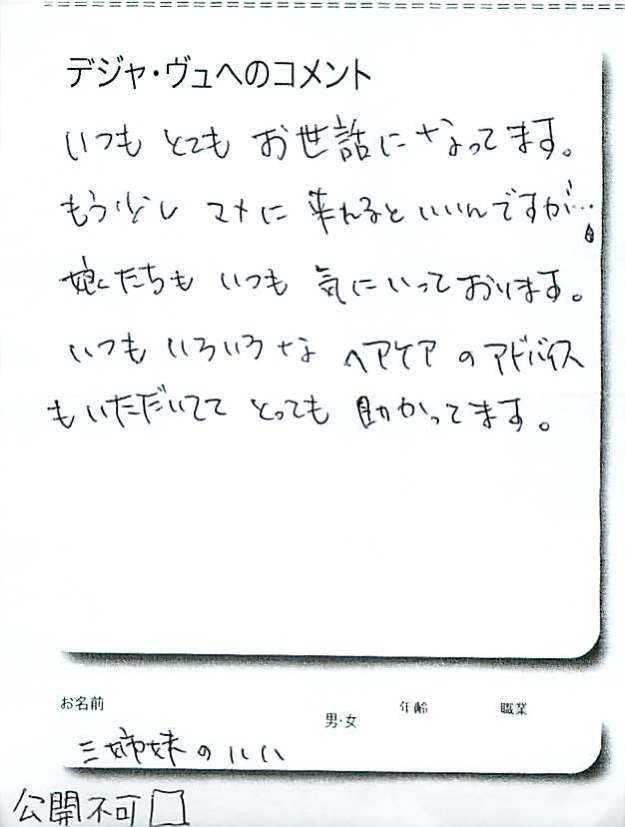 デジャ・ヴュへのコメント
いつも とても お世話に なってます。
もう少し マメに 来れると いいんですが…
娘たちも いつも 気にいっており ます。
いつも いろいろな ヘアケア の アドバイス
も いただいてて とっても 助かってます。
お名前
男・女
年齢
職業
三姉妹 の ハハ
公開不可